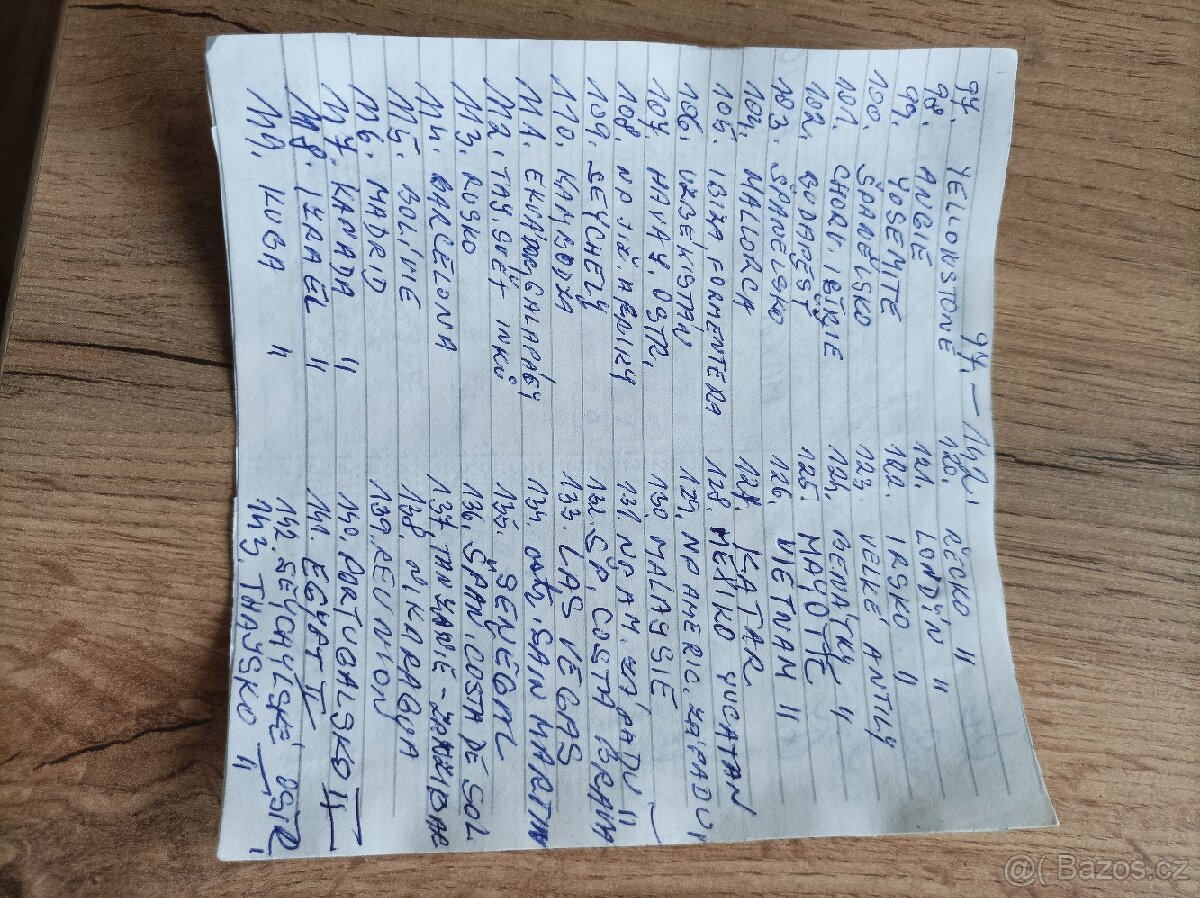 97. — 142,
97. YELLONSTONE
98. ANGLIE
99. YOSEMITE
100. ŠPANĚLSKO
101. CHORV. ISTRIE
102. BUDAPEŠŤ
103. ŠPANĚLSKO
104. MALLORCA
105. IBIZA, FORMENTERA
106. UZBEKISTÁN
107 HAVAY. OSTR,
108. NP J. Z. AFRIKY
109. SEYCHELY
110. KAMBODŽA
111. EKVÁDOR, GALAPÁGY
112. TAJ. SVĚT INKŮ
113. RUSKO
114. BARCELONA
115. BOLÍVIE
116. MADRID
117. KANADA "
118. IZRAEL "
119. KUBA "
120. ŘECKO "
121. LONDÝN "
122. IRSKO "
123. VELKÉ ANTILY
124. BENÁTKY "
125. MAYOTTE
126. VIETNAM "
127. KATAR.
128. MEXIKO YUCATAN
129. NP AMERIC. ZÁPADU
130. MALAYSIE
131 NP AM. ZÁPADU "
132. ŠP. COSTA BRAVA
133 LAS VEGAS
134. SAN MARTIN
135. SENEGAL
136. ŠPAN. COSTA DE SOL
137 TANZANIE - ZANZIBAR
138. NIKARAGUA
139. REUNION
140. PORTUGALSKO II
141. EGYPT II
142. SEYCHELSKÉ OSTR,
143. THAJSKO II
@( Bazos.cz